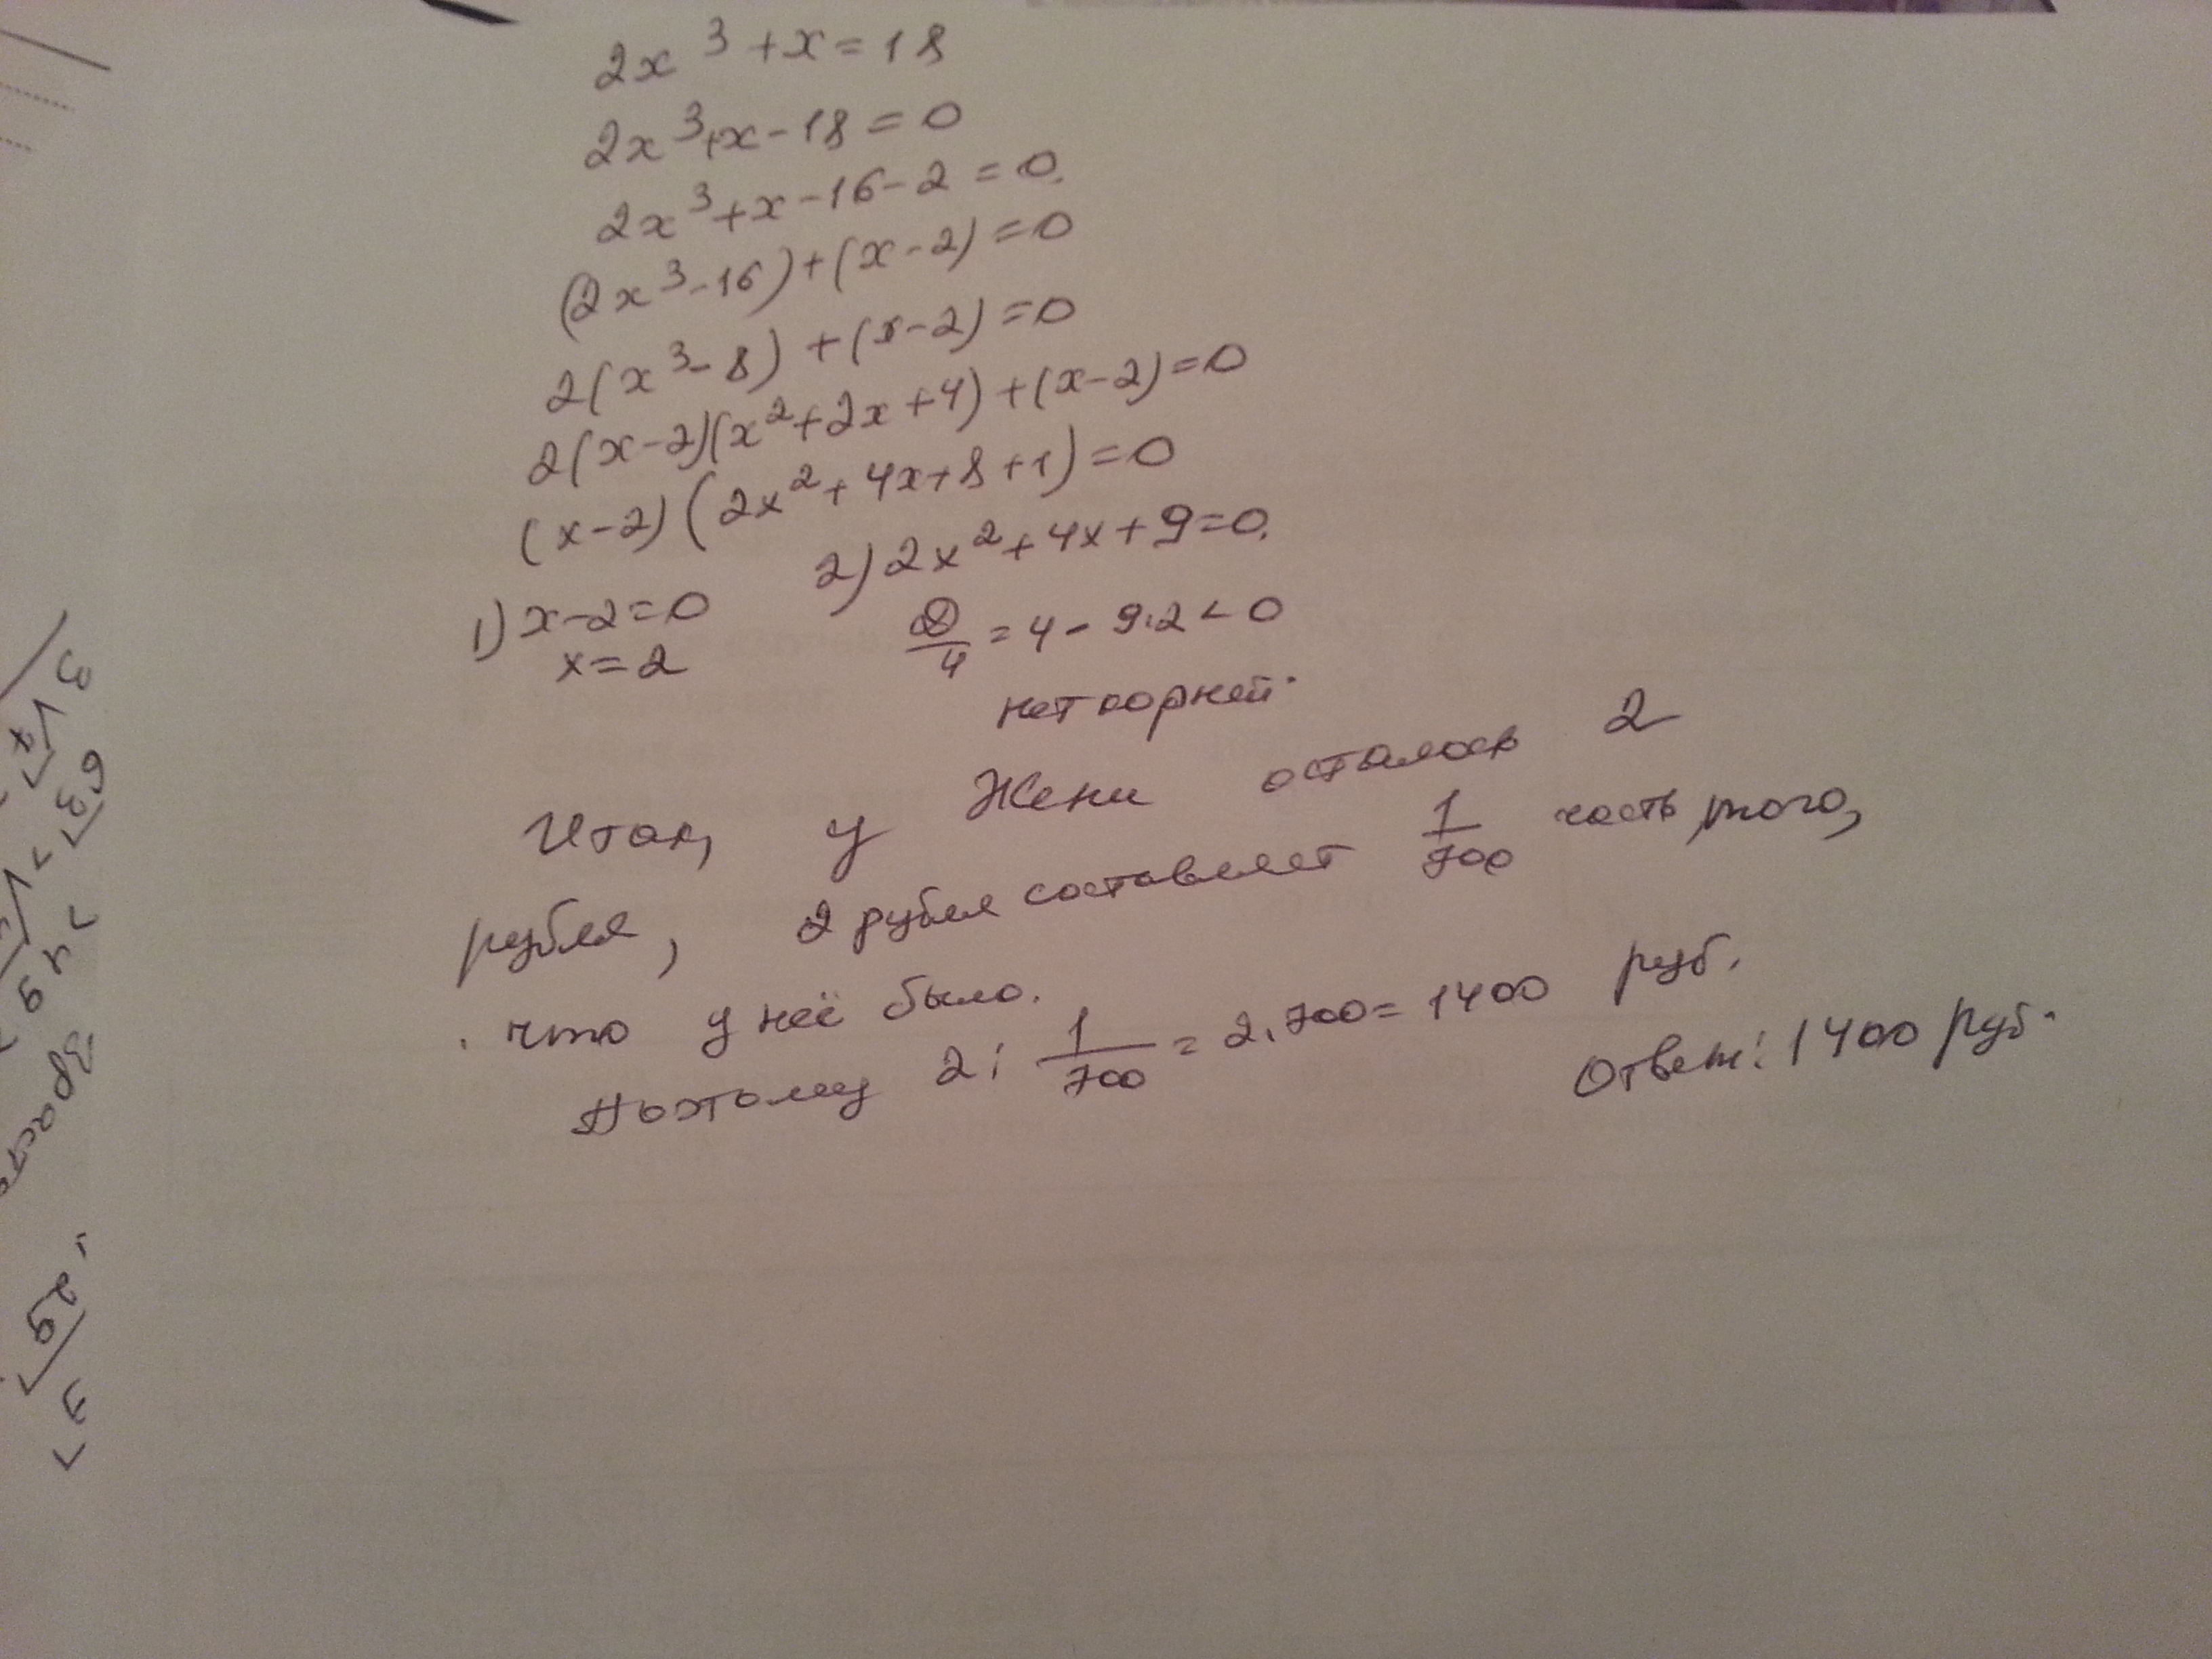 2x³+x=18
2x³+x-18=0
2x³+x-16-2=0.
(2x³-16)+(x-2)=0
2(x³-8)+(x-2)=0
2(x-2)(x²+2x+4)+(x-2)=0
(x-2)(2x²+4x+8+1)=0
1) x-2=0 2) 2x²+4x+9=0.
x=2 D/4=4-9·2<0
нет корней.
Итак, у Жени осталось 2
рубля, 2 рубля составляет 1/700 часть того,
что у неё было.
Поэтому 2:1/700=2·700=1400 руб.
Ответ: 1400 руб.